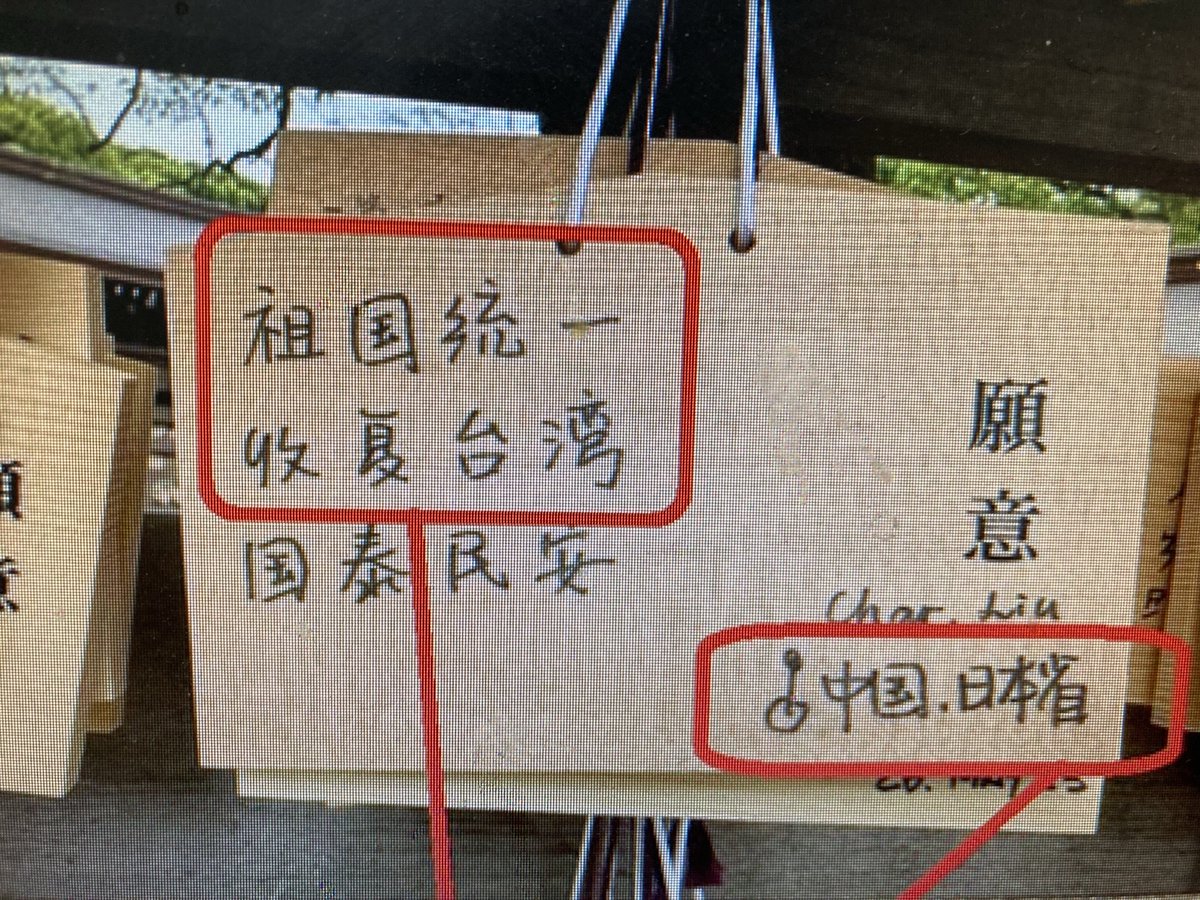 祖国统一
收夏台湾
国泰民安
願意
Char. Liu
中国.日本省
MAY